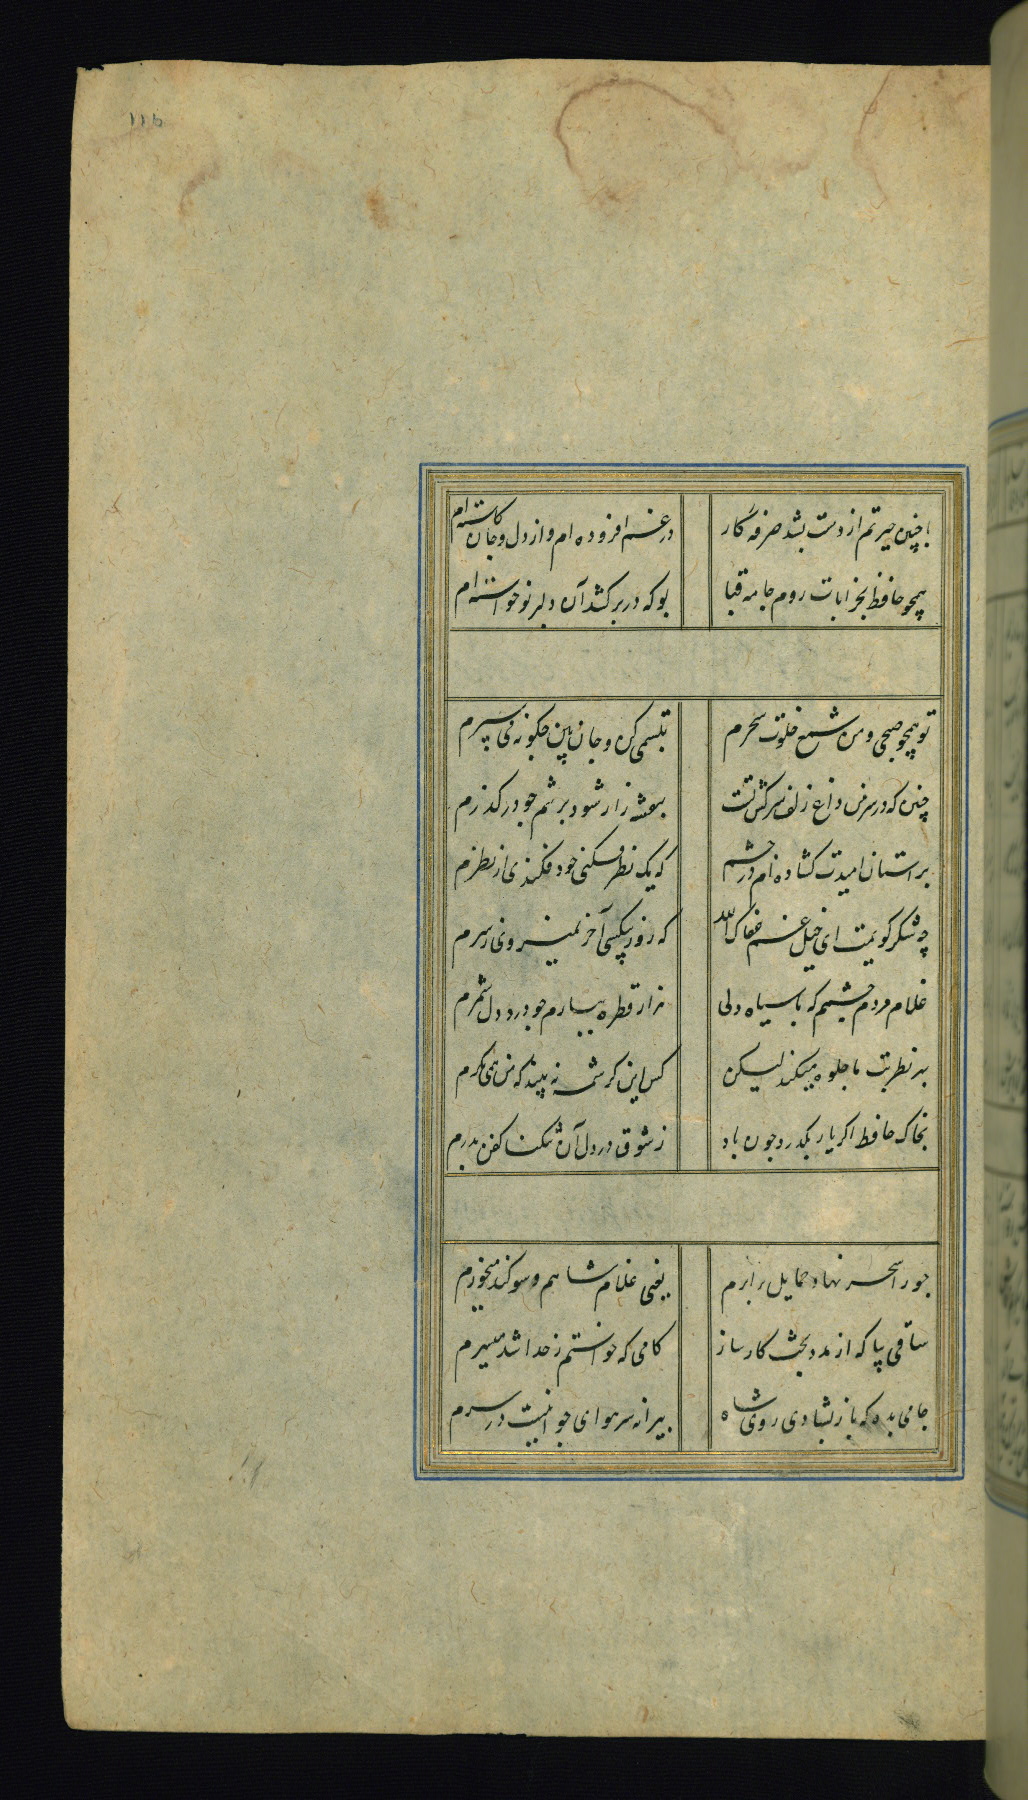 ۱۱۵
با چنین حیرتم از دست بشد صرفه کار
در غم افزوده ام و از دل و جان کاسته ام
همچو حافظ بخرابات روم جامه قبا
بو که در بر کشد آن دلبر نوخواسته ام
تو همچو صبحی و من شمع خلوت سحرم
تبسمی کن و جان بین چگونه می سپرم
چنین که در سر من داغ زلف سرکش تست
بنفشه زار شود تربتم چو درگذرم
بر آستان امیدت کشاده ام در چشم
که یک نظر فکنی خود فکندی از نظرم
چه شکر گویمت ای خیل غم عفاک الله
که روز بیکسی آخر نمیروی ز سرم
غلام مردم چشمم که با سیاه دلی
هزار قطره ببارم چو درد دل شمرم
بهر نظر بت ما جلوه میکند لیکن
کس این کرشمه نه بیند که من همی نکرم
بخاک حافظ اکر یار بگذرد چون باد
ز شوق در دل آن تنکنا کفن بدرم
جوزا سحر نهاد حمایل برابرم
یعنی غلام شاهم و سوکند میخورم
ساقی بیا که از مدد بخت کارساز
کامی که خواستم ز خدا شد میسرم
جامی بده که باز بشادی روی شاه
پیرانه سر هوای جوانیست در سرم